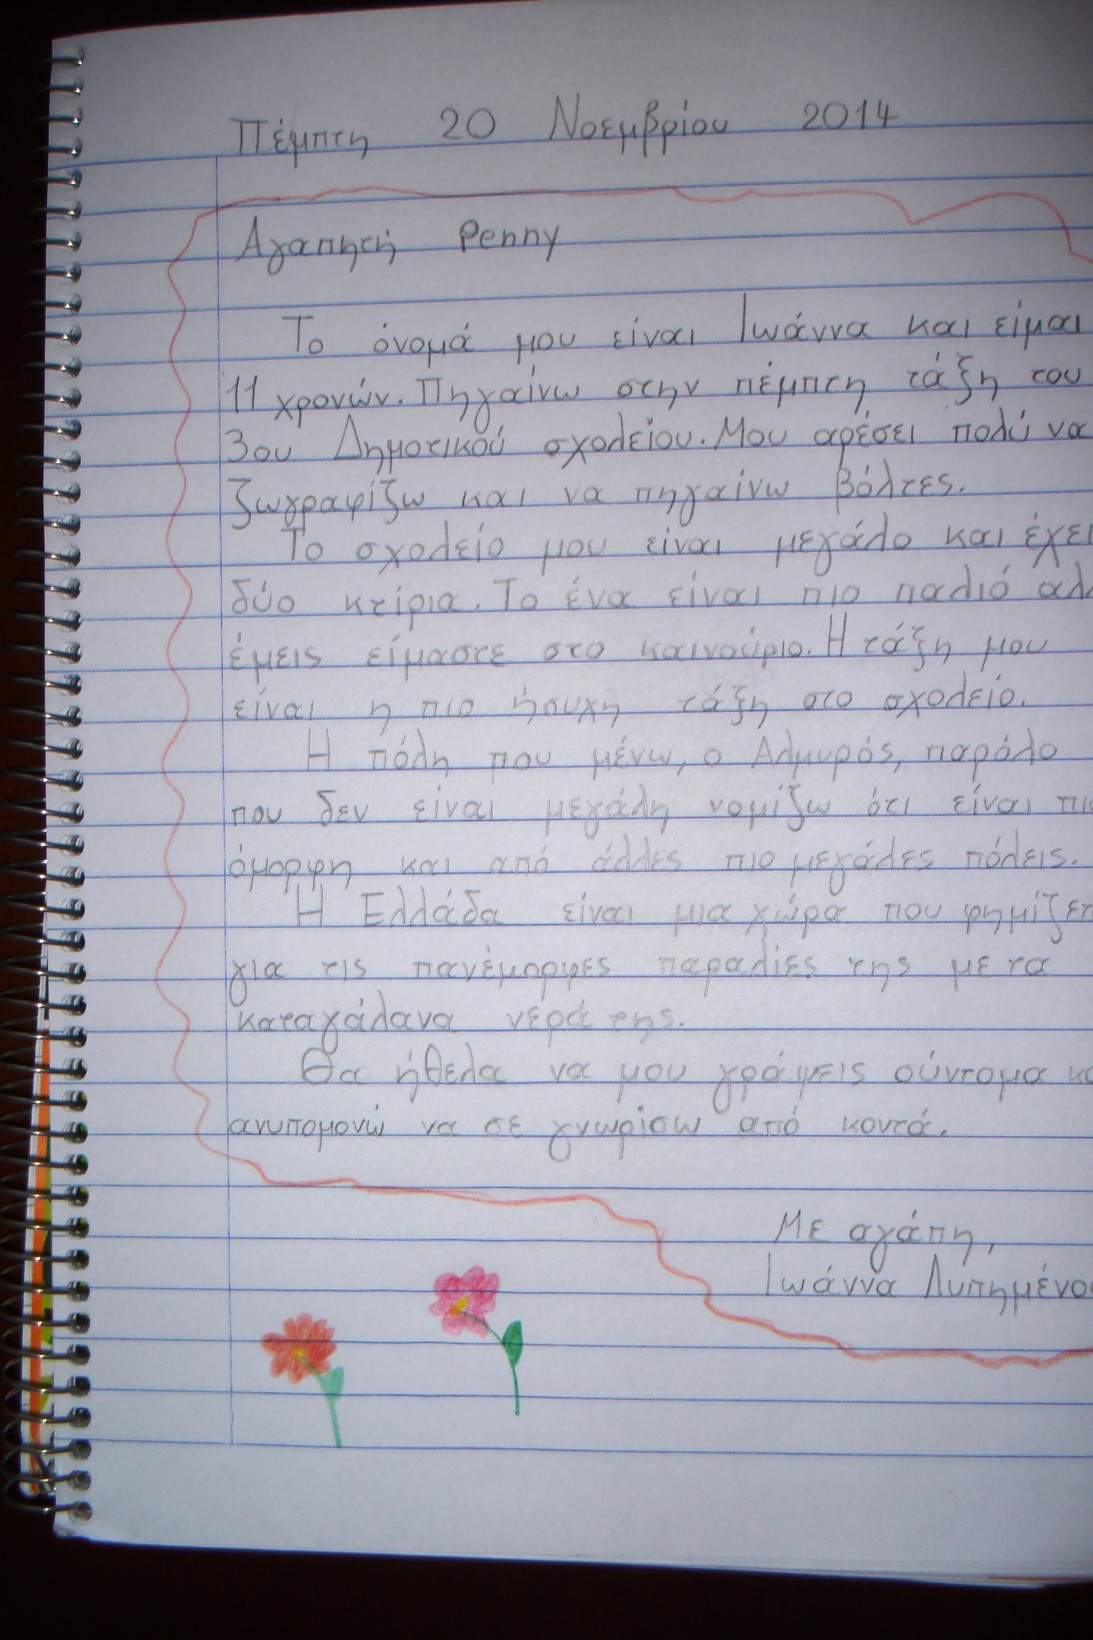 Πέμπτη 20 Νοεμβρίου 2014
Αγαπητή Penny
Το όνομά μου είναι Ιωάννα και είμαι
11 χρονών. Πηγαίνω στην πέμπτη τάξη του
3ου Δημοτικού σχολείου. Μου αρέσει πολύ να
ζωγραφίζω και να πηγαίνω βόλτες.
Το σχολείο μου είναι μεγάλο και έχει
δύο κτίρια. Το ένα είναι πιο παλιό
έμεις είμαστε στο καινούριο. Η τάξη μου
είναι η πιο ήσυχη τάξη στο σχολείο.
Η πόλη που μένω, ο Αλμυρός, παρόλο
που δεν είναι μεγάλη νομίζω ότι είναι
όμορφη και από άλλες πιο μεγάλες πόλεις.
Η Ελλάδα είναι μια χώρα που
για τις πανέμορφες παραλίες της με τα
καταγάλανα νερά της.
Θα ήθελα να μου γράψεις σύντομα
ανυπομονώ να σε γνωρίσω από κοντά.
Με αγάπη,
Ιωάννα